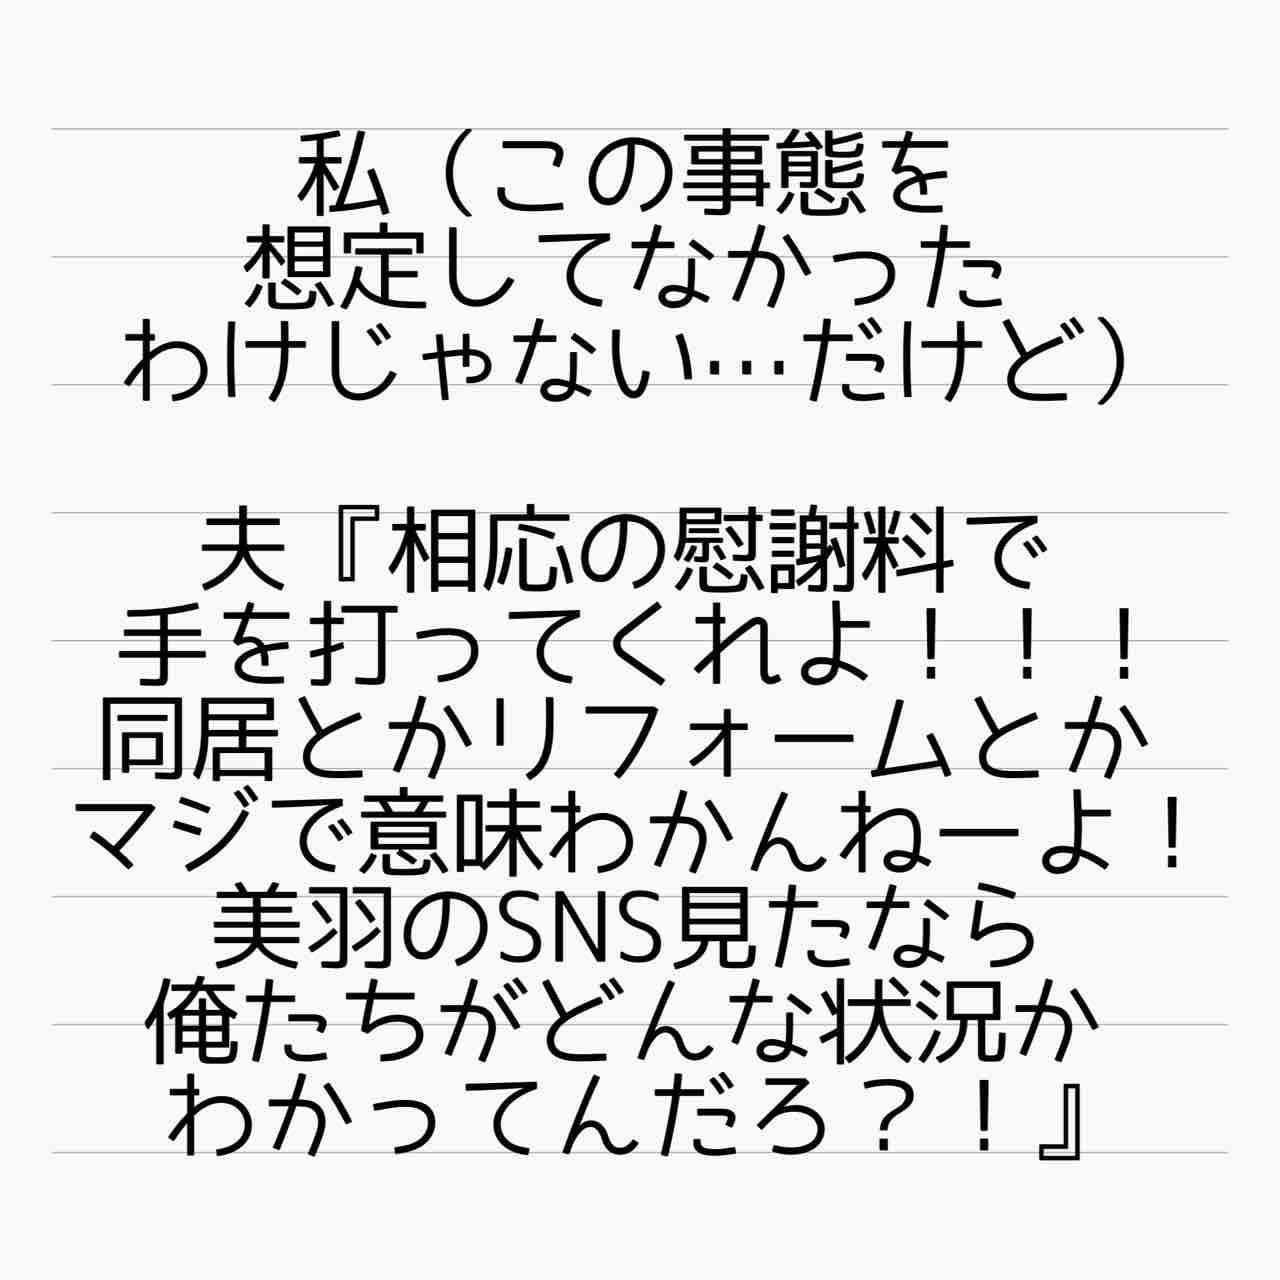 私（この事態を
想定してなかった
わけじゃない…だけど）
夫『相応の慰謝料で
手を打ってくれよ！！！
同居とかリフォームとか
マジで意味わかんねーよ！
美羽のSNS見たなら
俺たちがどんな状況か
わかってんだろ？！』